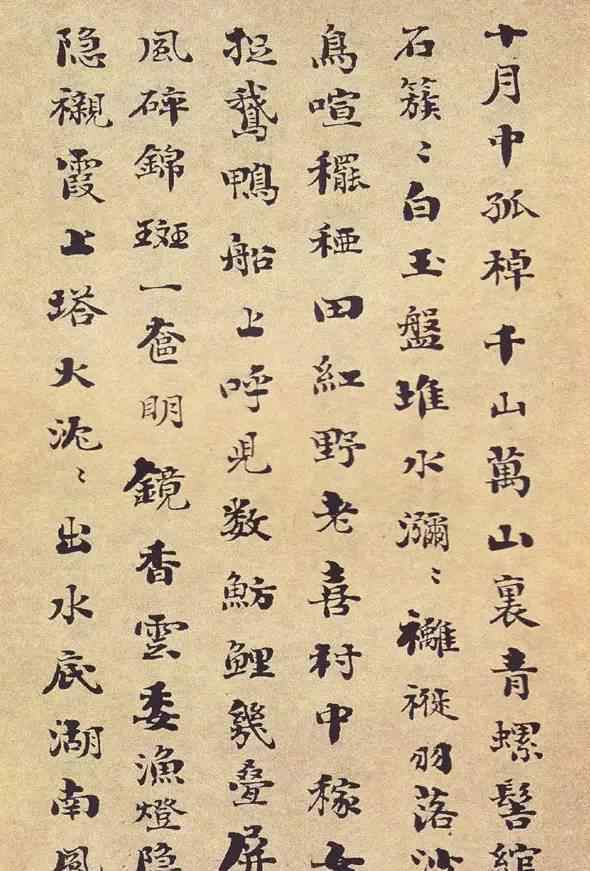 十月中孤棹千山萬山裏青螺髻綰
石簇〻白玉盤堆水瀰〻襳褷羽落沙
鳥喧䆉稏田紅野老喜村中稼女
捉鵝鴨船上呼児数魴鯉幾疊屏
風碎錦斑一奩明鏡香雲委漁燈隐
隐襯霞上塔火沉〻出水底湖南風